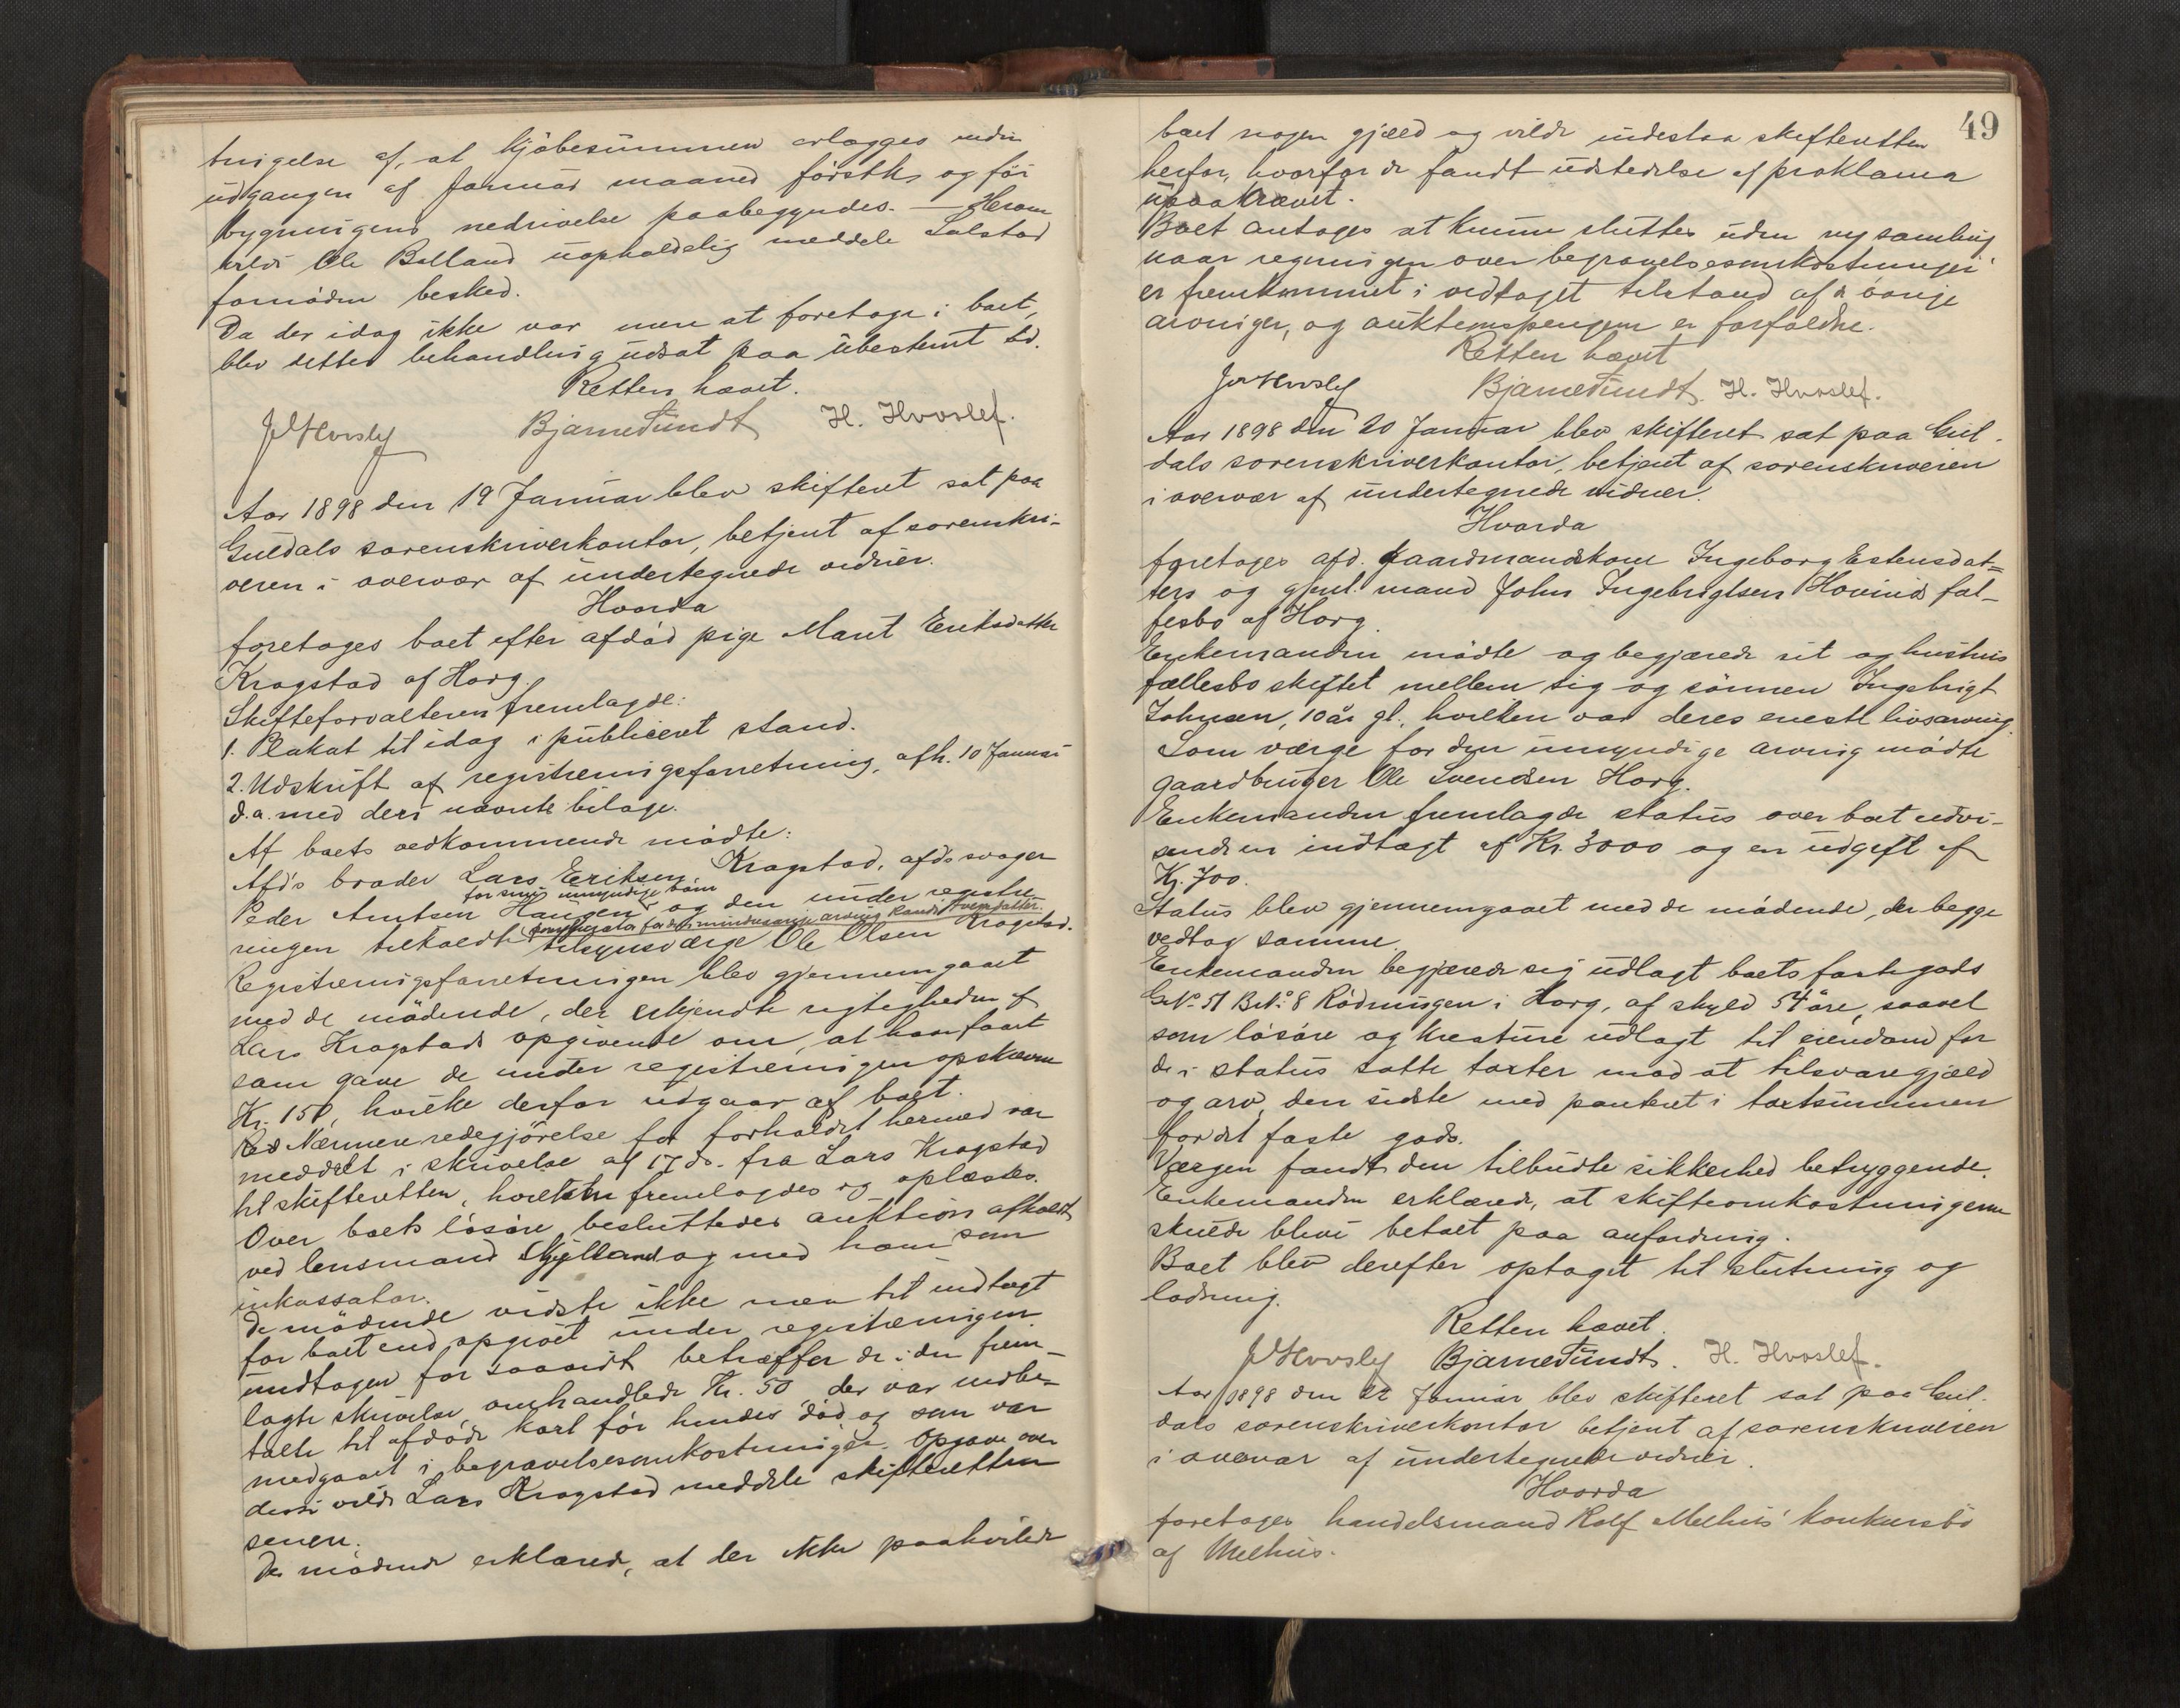 tingelse af, at kjöbesummen erlægges inden
udgangen af Januar maaned förstk. og för
bygningens nedrivelse paabegyndes. — Herom
vilde Ole Belland uopholdelig meddele Solstad
fornöden besked.
Da der idag ikke var mere at foretage i boet,
blev dettes behandling udsat paa ubestemt td.
Retten hævet.
Bjarne Sundt H. Hvoslef.
Aar 1898 den 19 Januar blev skifteret sat paa
Guldals sorenskriverkontor, betjent af sorenskri-
veren i overvær af undertegnede vidner.
Hvorda
foretoges boet efter afdöd pige Marit Eriksdatter
Krogstad af Horg.
Skifteforvalteren fremlagde:
1. Plakat til idag i publiceret stand.
2. Udskrift af registreringsforretning, afh. 10 Januar
d.a. med deri nævnte bilage.
Af boets vedkommende mödte:
Afd's broder Lars Eriksen Krogstad, afd's svoger
for sine umyndige börn
Peder Arntsen Haugen og den under registre
kurator for den mindreaarige arving Randi Svendsdatter
ringen tilkaldte tilsynsværge Ole Olsen Krogstad.
Registreringsforretningen blev gjennemgaaet
med de mödende, der erkjendte rigtigheden af
Lars Krogstads opgivende om, at have faaet
som gave de under registreringen opskrevne
Kr. 150, hvilke derfor udgaar af boet.
Nærmere redegjörelse for forholdet hermed var
meddelt i skrivelse af 17 ds. fra Lars Krogstad
til skifteretten, hvilken fremlagdes og oplæstes.
Over boets lösöre besluttedes auktion afholdt
ved lensmand Skjelland og med ham som
inkassator.
De mödende vidste ikke mere til indtægt
for boet end opgivet under registreringen
undtagen forsaavidt betræffer de i den frem-
lagte skrivelse omhandlede Kr. 50, der var indbe-
talte til afdöde kort för hendes död og som var
medgaaet i begravelsesomkostninger. Opgave over
disse vilde Lars Krogstad meddele skifteretten
senere.
De mödende erklærede, at der ikke paahvilede
49
boet nogen gjæld og vilde indestaa skifteretten
herfor, hvorfor de fandt udstedelse af proklama
upaakrævet.
Boet antoges at kunne sluttes uden ny samling
naar regningen over begravelsesomkostninger
er fremkommet i vedtaget tilstand af de övrige
arvinger, og auktionspengene er forfaldne.
Retten hævet
Bjarne Sundt. H. Hvoslef.
Aar 1898 den 20 Januar blev skifteret sat paa Gul-
dals sorenskriverkontor, betjent af sorenskriveren
i overvær af undertegnede vidner.
Hvorda
foretoges afd. gaardmandskone Ingeborg Estensdat=
ters og gjenl. mand John Ingebrigtsen Hovinds fæl-
lesbo af Horg.
Enkemanden mödte og begjærede sit og hustrus
fællesbo skiftet mellem sig og sönnen Ingebrigt
Johnsen, 10 år gl., hvilken var deres eneste livsarving.
Som værge for den umyndige arving mödte
gaardbruger Ole Svendsen Horg.
Enkemanden fremlagde status over boet udvi-
sende en indtægt af Kr. 3000 og en udgift af
Kr. 700.
Status blev gjennemgaaet med de mödende, der begge
vedtog samme.
Enkemanden begjærede sig udlagt boets faste gods
G.No. 51 B.No. 8 Rödningen i Horg, af skyld 54 öre, saavel
som lösöre og kreature udlagt til eiendom for
de i status satte taxter mod at tilsvare gjæld
og arv, den sidste med panteret i taxtsummen
for det faste gods.
Værgen fandt den tilbudte sikkerhed betryggende.
Enkemanden erklærede, at skifteomkostningerne
skulde blive betalt paa anfordring.
Boet blev derefter optaget til slutning og
lodning.
Retten hævet.
Bjarne Sundt. H. Hvoslef.
Aar 1898 den 22 Januar blev skifteret sat paa Gul-
dals sorenskriverkontor betjent af sorenskriveren
i overvær af undertegnede vidner.
Hvorda
foretoges handelsmand Rolf Melhus' konkursbo
af Melhus.